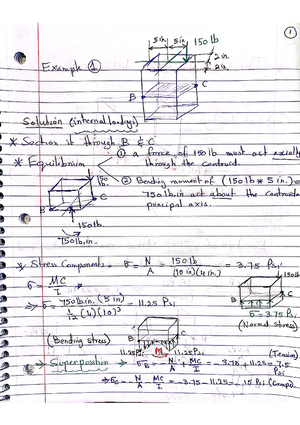 ①
5in. 5in. 150 lb
2 in.
2 in.
Example ①
B C
Solution (internal loadings)
* Section it through B & C
* Equilibrium ① a force of 150 lb must act axially
through the centroid.
150 lb.
② Bending moment of (150 lb * 5 in.) =
750 lb.in act about the centroidal
principal axis.
B C
150 lb.
750 lb.in.
* Stress Components = σ = N/A = 150 lb/(10 in)(4 in.) = 3.75 Psi
σ = MC/I
150 lb
⇒ σ = 750 lb.in. (5 in)/1/12 (4)(10)³ = 11.25 Psi
σ = 3.75 Psi
(Normal stress)
(Bending stress)
11.25 Psi M 11.25 Psi
(Tension)
* Superposition ⇒ σB = - N/A + MC/I = - 3.75 + 11.25 = 7.5 Psi
⇒ σc = - N/A - MC/I = - 3.75 - 11.25 = - 15 Psi (Comp.)